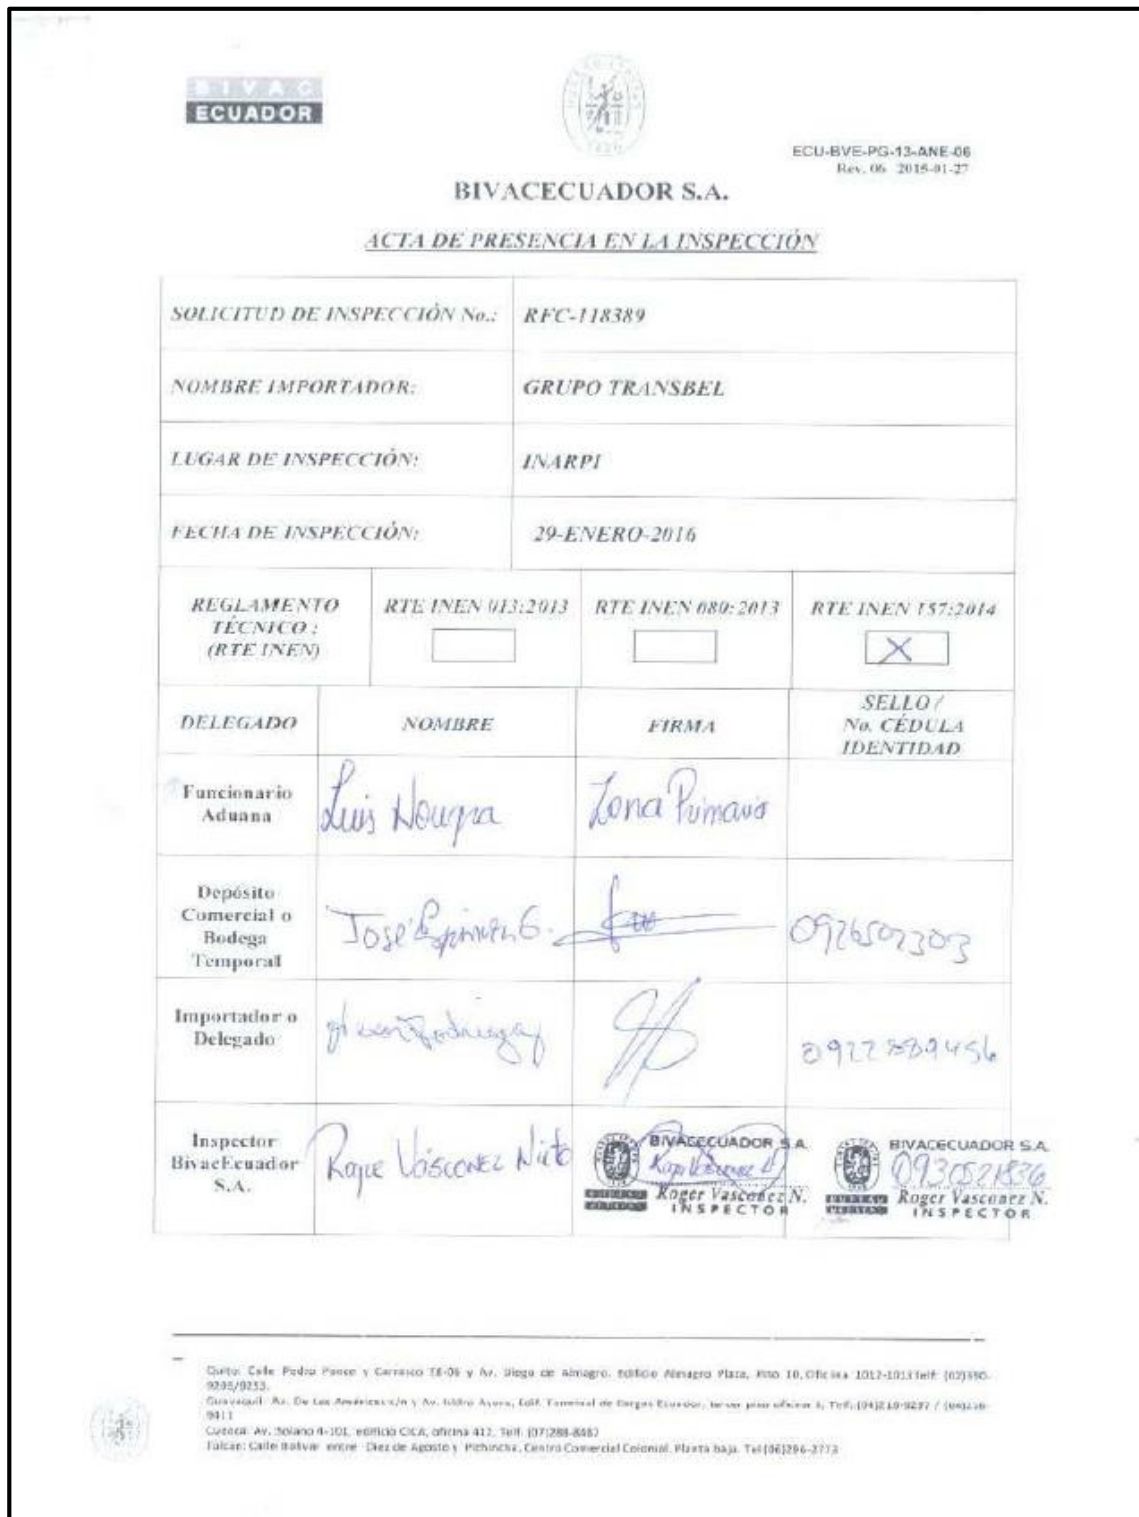 BIVAC
ECUADOR
ECU-BVE-PG-13-ANE-06
Rev. 06 2015-01-27
BIVACECUADOR S.A.
ACTA DE PRESENCIA EN LA INSPECCIÓN
SOLICITUD DE INSPECCIÓN No.: RFC-118389
NOMBRE IMPORTADOR: GRUPO TRANSBEL
LUGAR DE INSPECCIÓN: INARPI
FECHA DE INSPECCIÓN: 29-ENERO-2016
REGLAMENTO TÉCNICO: (RTE INEN)
RTE INEN 013:2013
RTE INEN 080:2013
RTE INEN 157:2014
X
DELEGADO
NOMBRE
FIRMA
SELLO / No. CÉDULA IDENTIDAD
Funcionario Aduana
Luis
Zona Primaria
Depósito Comercial o Bodega Temporal
José
Importador o Delegado
Inspector BivacEcuador S.A.
Vásconez Nieto
BIVACECUADOR S.A.
Roger Vasconez N.
INSPECTOR
BIVACECUADOR S.A.
Roger Vasconez N.
INSPECTOR
Quito: Calle Pedro Ponce y Carrasco E8-06 y Av. Diego de Almagro. Edificio Almagro Plaza, Piso 10, Oficina 1012-1013 Telf:
Guayaquil: Av. De Las Américas s/n y Av. Isidro Ayora, Edif. Terminal de Cargas Ecuador, tercer piso oficina
Cuenca: Av. Solano 4-101, edificio CICA, oficina 412, Telf. (07)288-8482
Tulcán: Calle Bolívar entre Diez de Agosto y Pichincha, Centro Comercial Colonial. Planta baja. Tel (06)296-2773